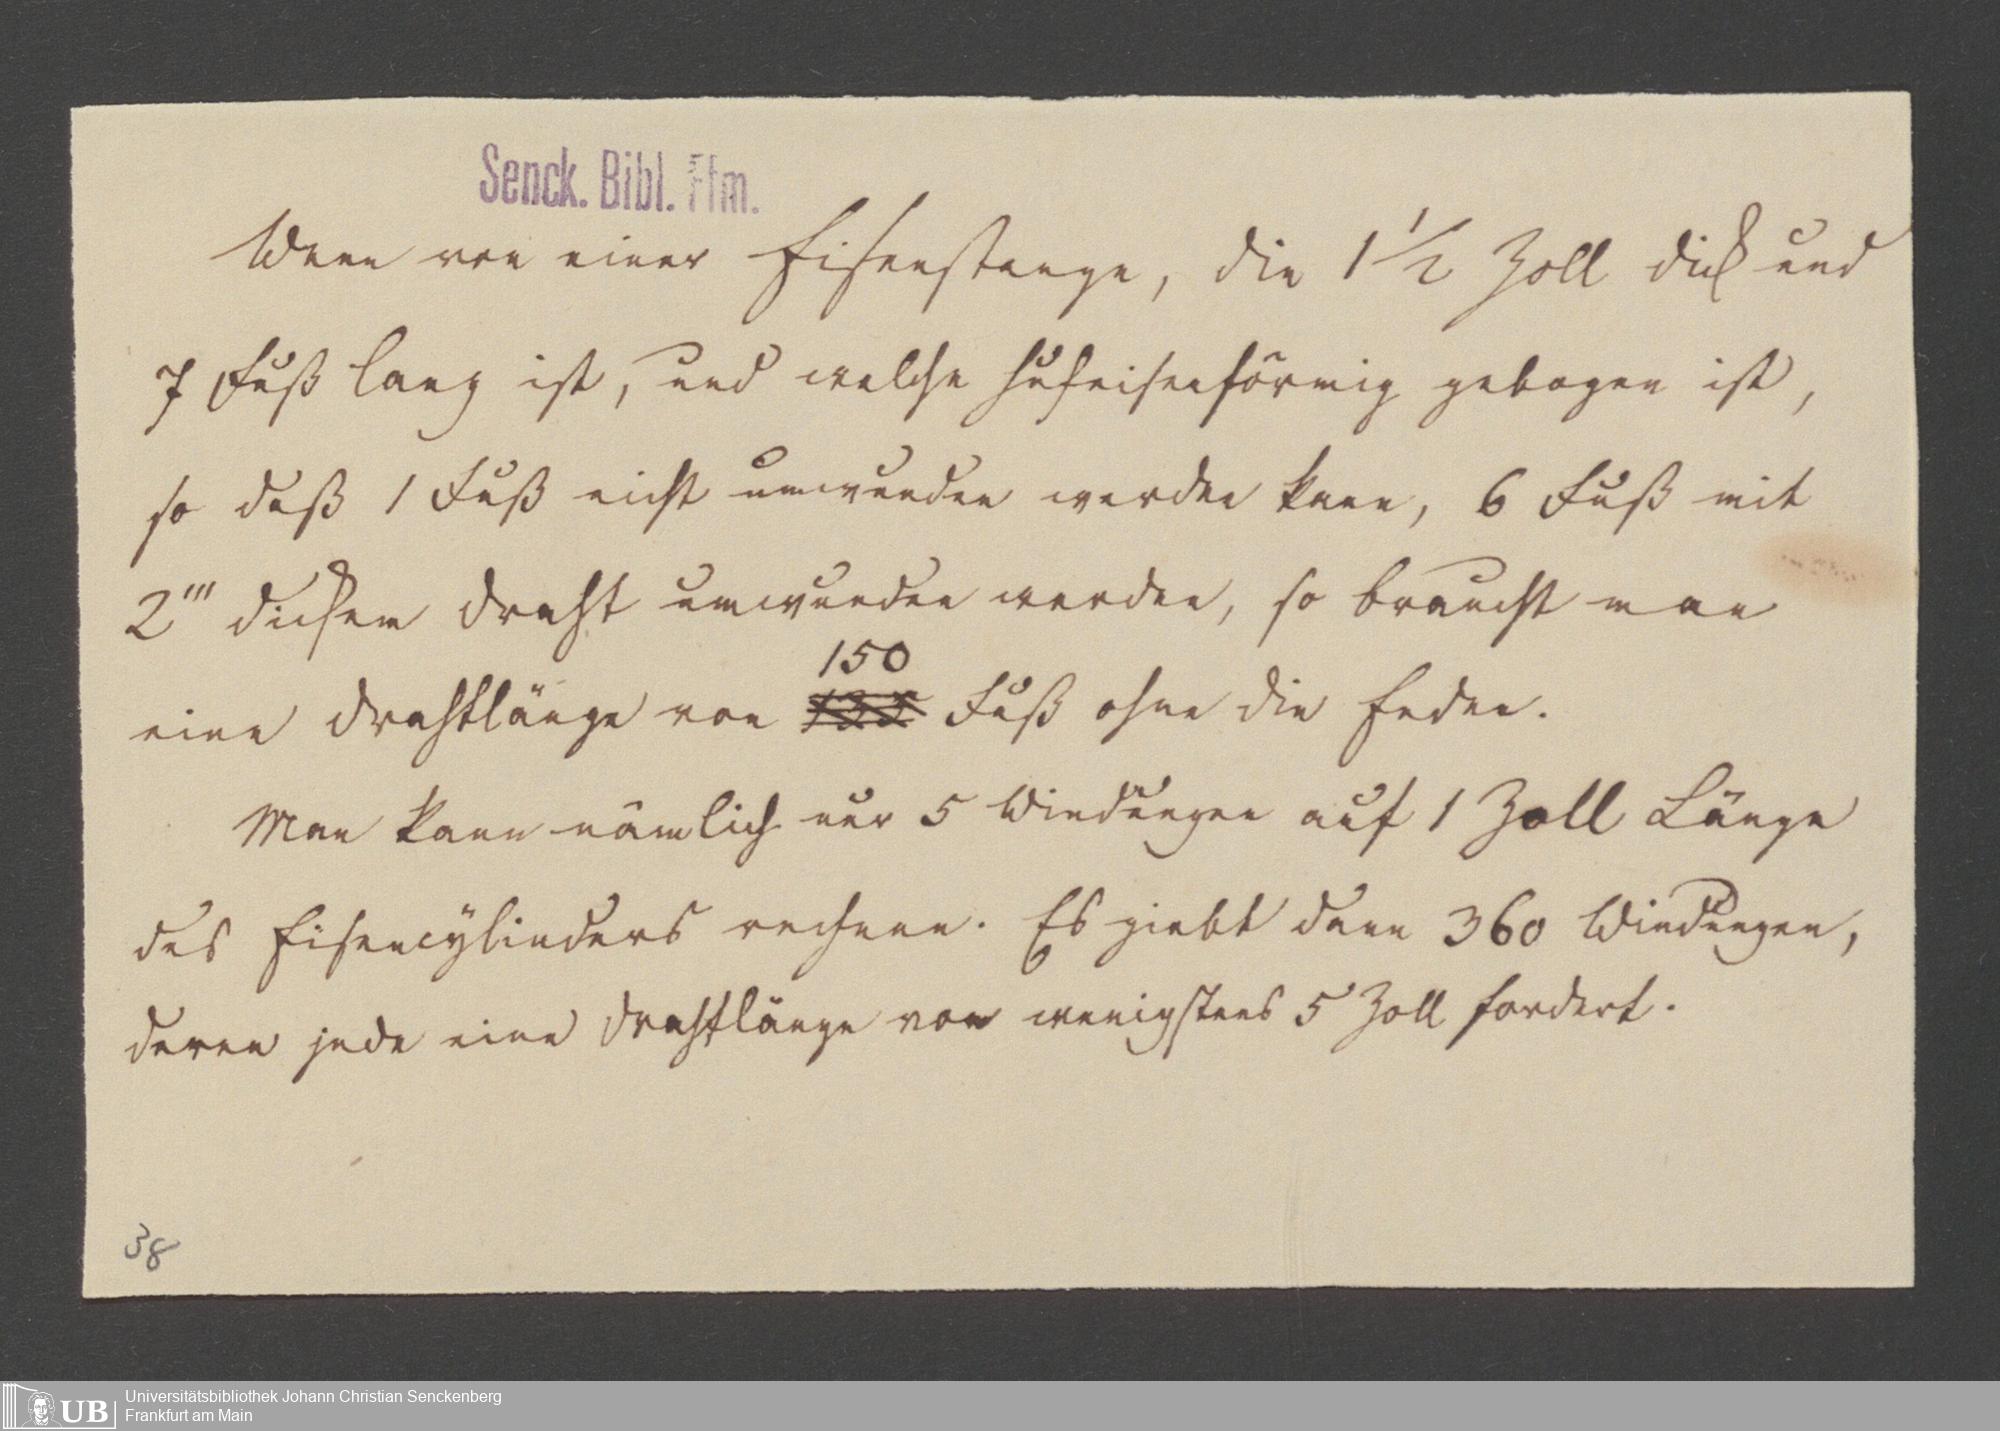 Senck. Bibl. Ffm.
Wenn von einer Eisenstange, die 1 1/2 Zoll dick und
7 Fuß lang ist, und welche hufeisenförmig gebogen ist,
so daß 1 Fuß nicht umwunden werden kann, 6 Fuß mit
2''' dickem Draht umwunden werden, so braucht man
150
eine Drahtlänge von Fuß ohne die Enden.
Man kann nämlich nur 5 Windungen auf 1 Zoll Länge
des Eisencylinders rechnen. Es giebt dann 360 Windungen,
deren jede eine Drahtlänge von wenigstens 5 Zoll fordert.
38
UB
Universitätsbibliothek Johann Christian Senckenberg
Frankfurt am Main